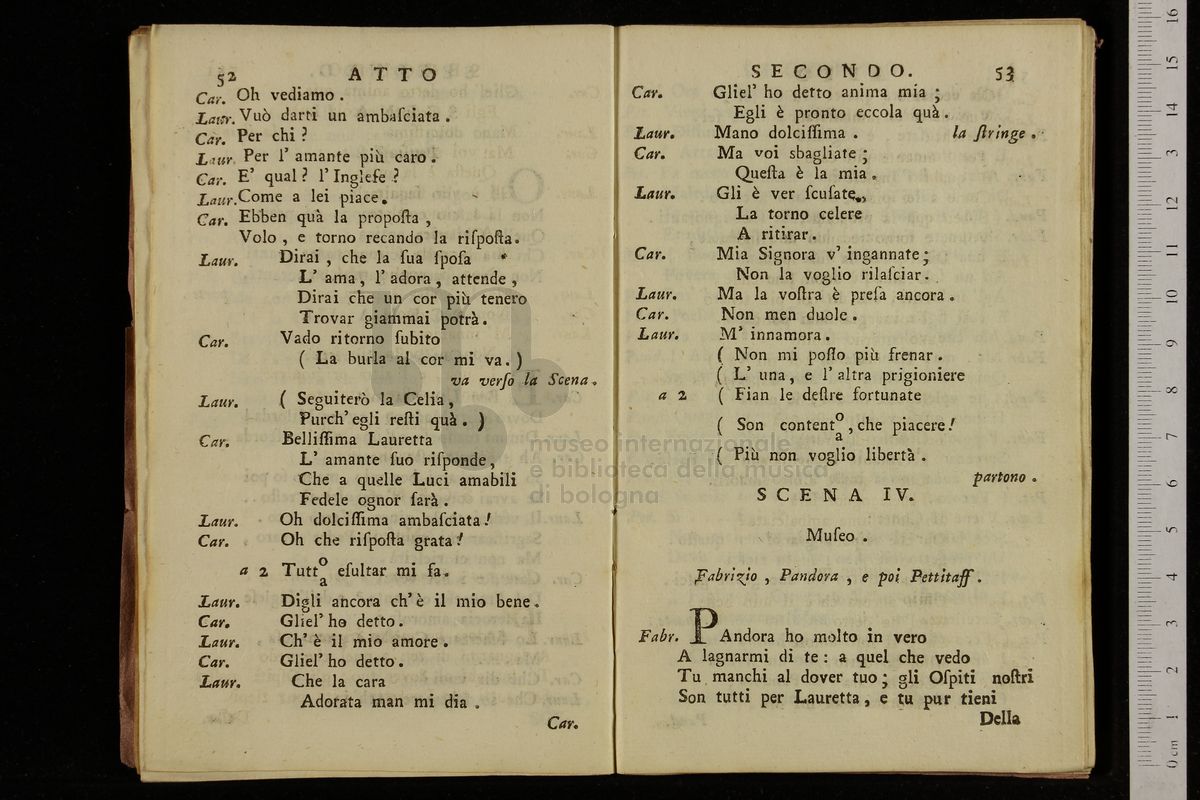 52 ATTO
Car. Oh vediamo .
Laur. Vuò darti un ambaſciata .
Car. Per chi ?
Laur. Per l' amante più caro .
Car. E' qual ? l' Ingleſe ?
Laur. Come a lei piace.
Car. Ebben quà la propoſta ,
Volo , e torno recando la riſpoſta.
Laur. Dirai , che la ſua ſpoſa
L' ama , l' adora , attende ,
Dirai che un cor più tenero
Trovar giammai potrà .
Car. Vado ritorno ſubito
( La burla al cor mi va . )
va verſo la Scena .
Laur. ( Seguiterò la Celia ,
Purch' egli reſti quà . )
Car. Belliſſima Lauretta
L' amante ſuo riſponde ,
Che a quelle Luci amabili
Fedele ognor ſarà .
Laur. Oh dolciſſima ambaſciata !
Car. Oh che riſpoſta grata !
a 2 Tutt o/a eſultar mi fa .
Laur. Digli ancora ch' è il mio bene .
Car. Gliel' ho detto .
Laur. Ch' è il mio amore .
Car. Gliel' ho detto .
Laur. Che la cara
Adorata man mi dia .
Car.
SECONDO. 53
Car. Gliel' ho detto anima mia ;
Egli è pronto eccola quà .
Laur. Mano dolciſſima . la ſtringe .
Car. Ma voi sbagliate ;
Queſta è la mia .
Laur. Gli è ver ſcuſate.,
La torno celere
A ritirar .
Car. Mia Signora v' ingannate ;
Non la voglio rilaſciar .
Laur. Ma la voſtra è preſa ancora .
Car. Non men duole .
Laur. M' innamora .
( Non mi poſſo più frenar .
( L' una , e l' altra prigioniere
a 2 ( Fian le deſtre fortunate
( Son content o/a , che piacere !
( Più non voglio libertà .
partono .
SCENA IV.
Muſeo .
Fabrizio , Pandora , e poi Pettitaff .
Fabr. PAndora ho molto in vero
A lagnarmi di te : a quel che vedo
Tu manchi al dover tuo ; gli Oſpiti noſtri
Son tutti per Lauretta , e tu pur tieni
Della
museo internazionale
e biblioteca della musica
di bologna
0 cm 1 2 3 4 5 6 7 8 9 10 11 12 13 14 15 16